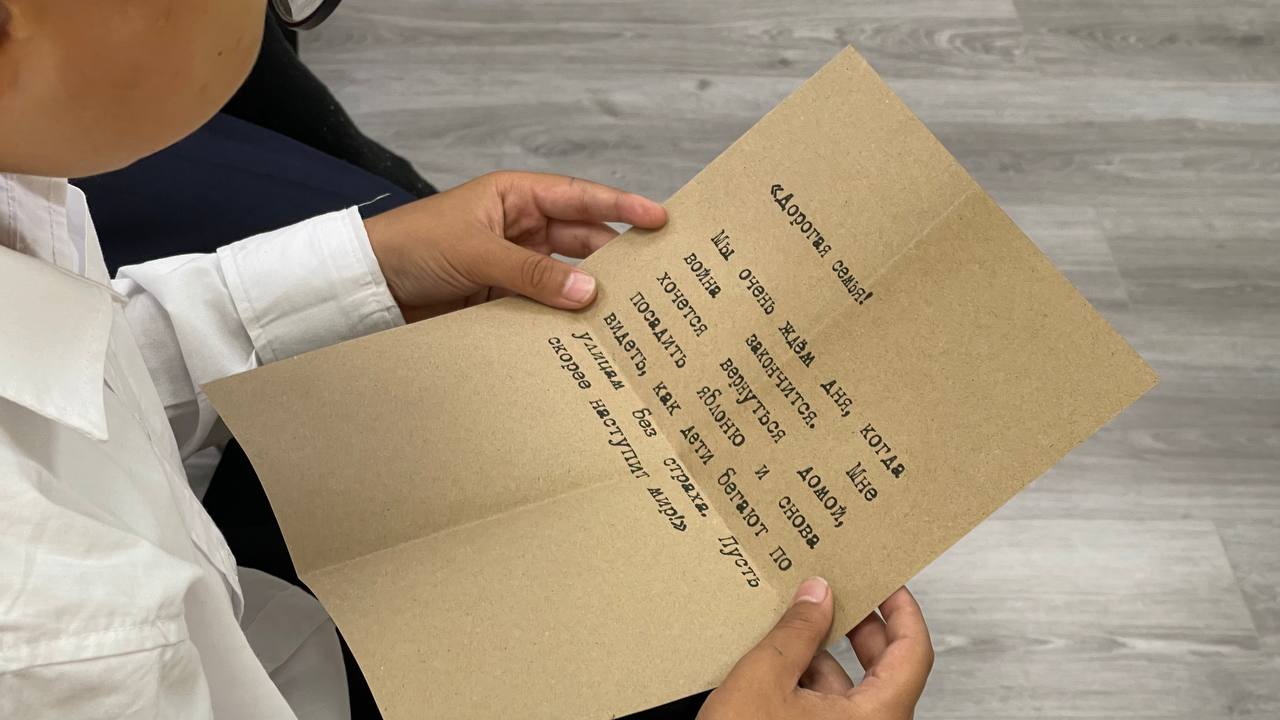 «Дорогая семья!
Мы очень ждём дня, когда
война закончится. Мне
хочется вернуться домой,
посадить яблоню и снова
видеть, как дети бегают по
улицам без страха. Пусть
скорее наступит мир!»